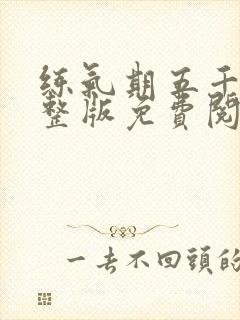 练氣期五千
整版免費閱
一去不回頭的